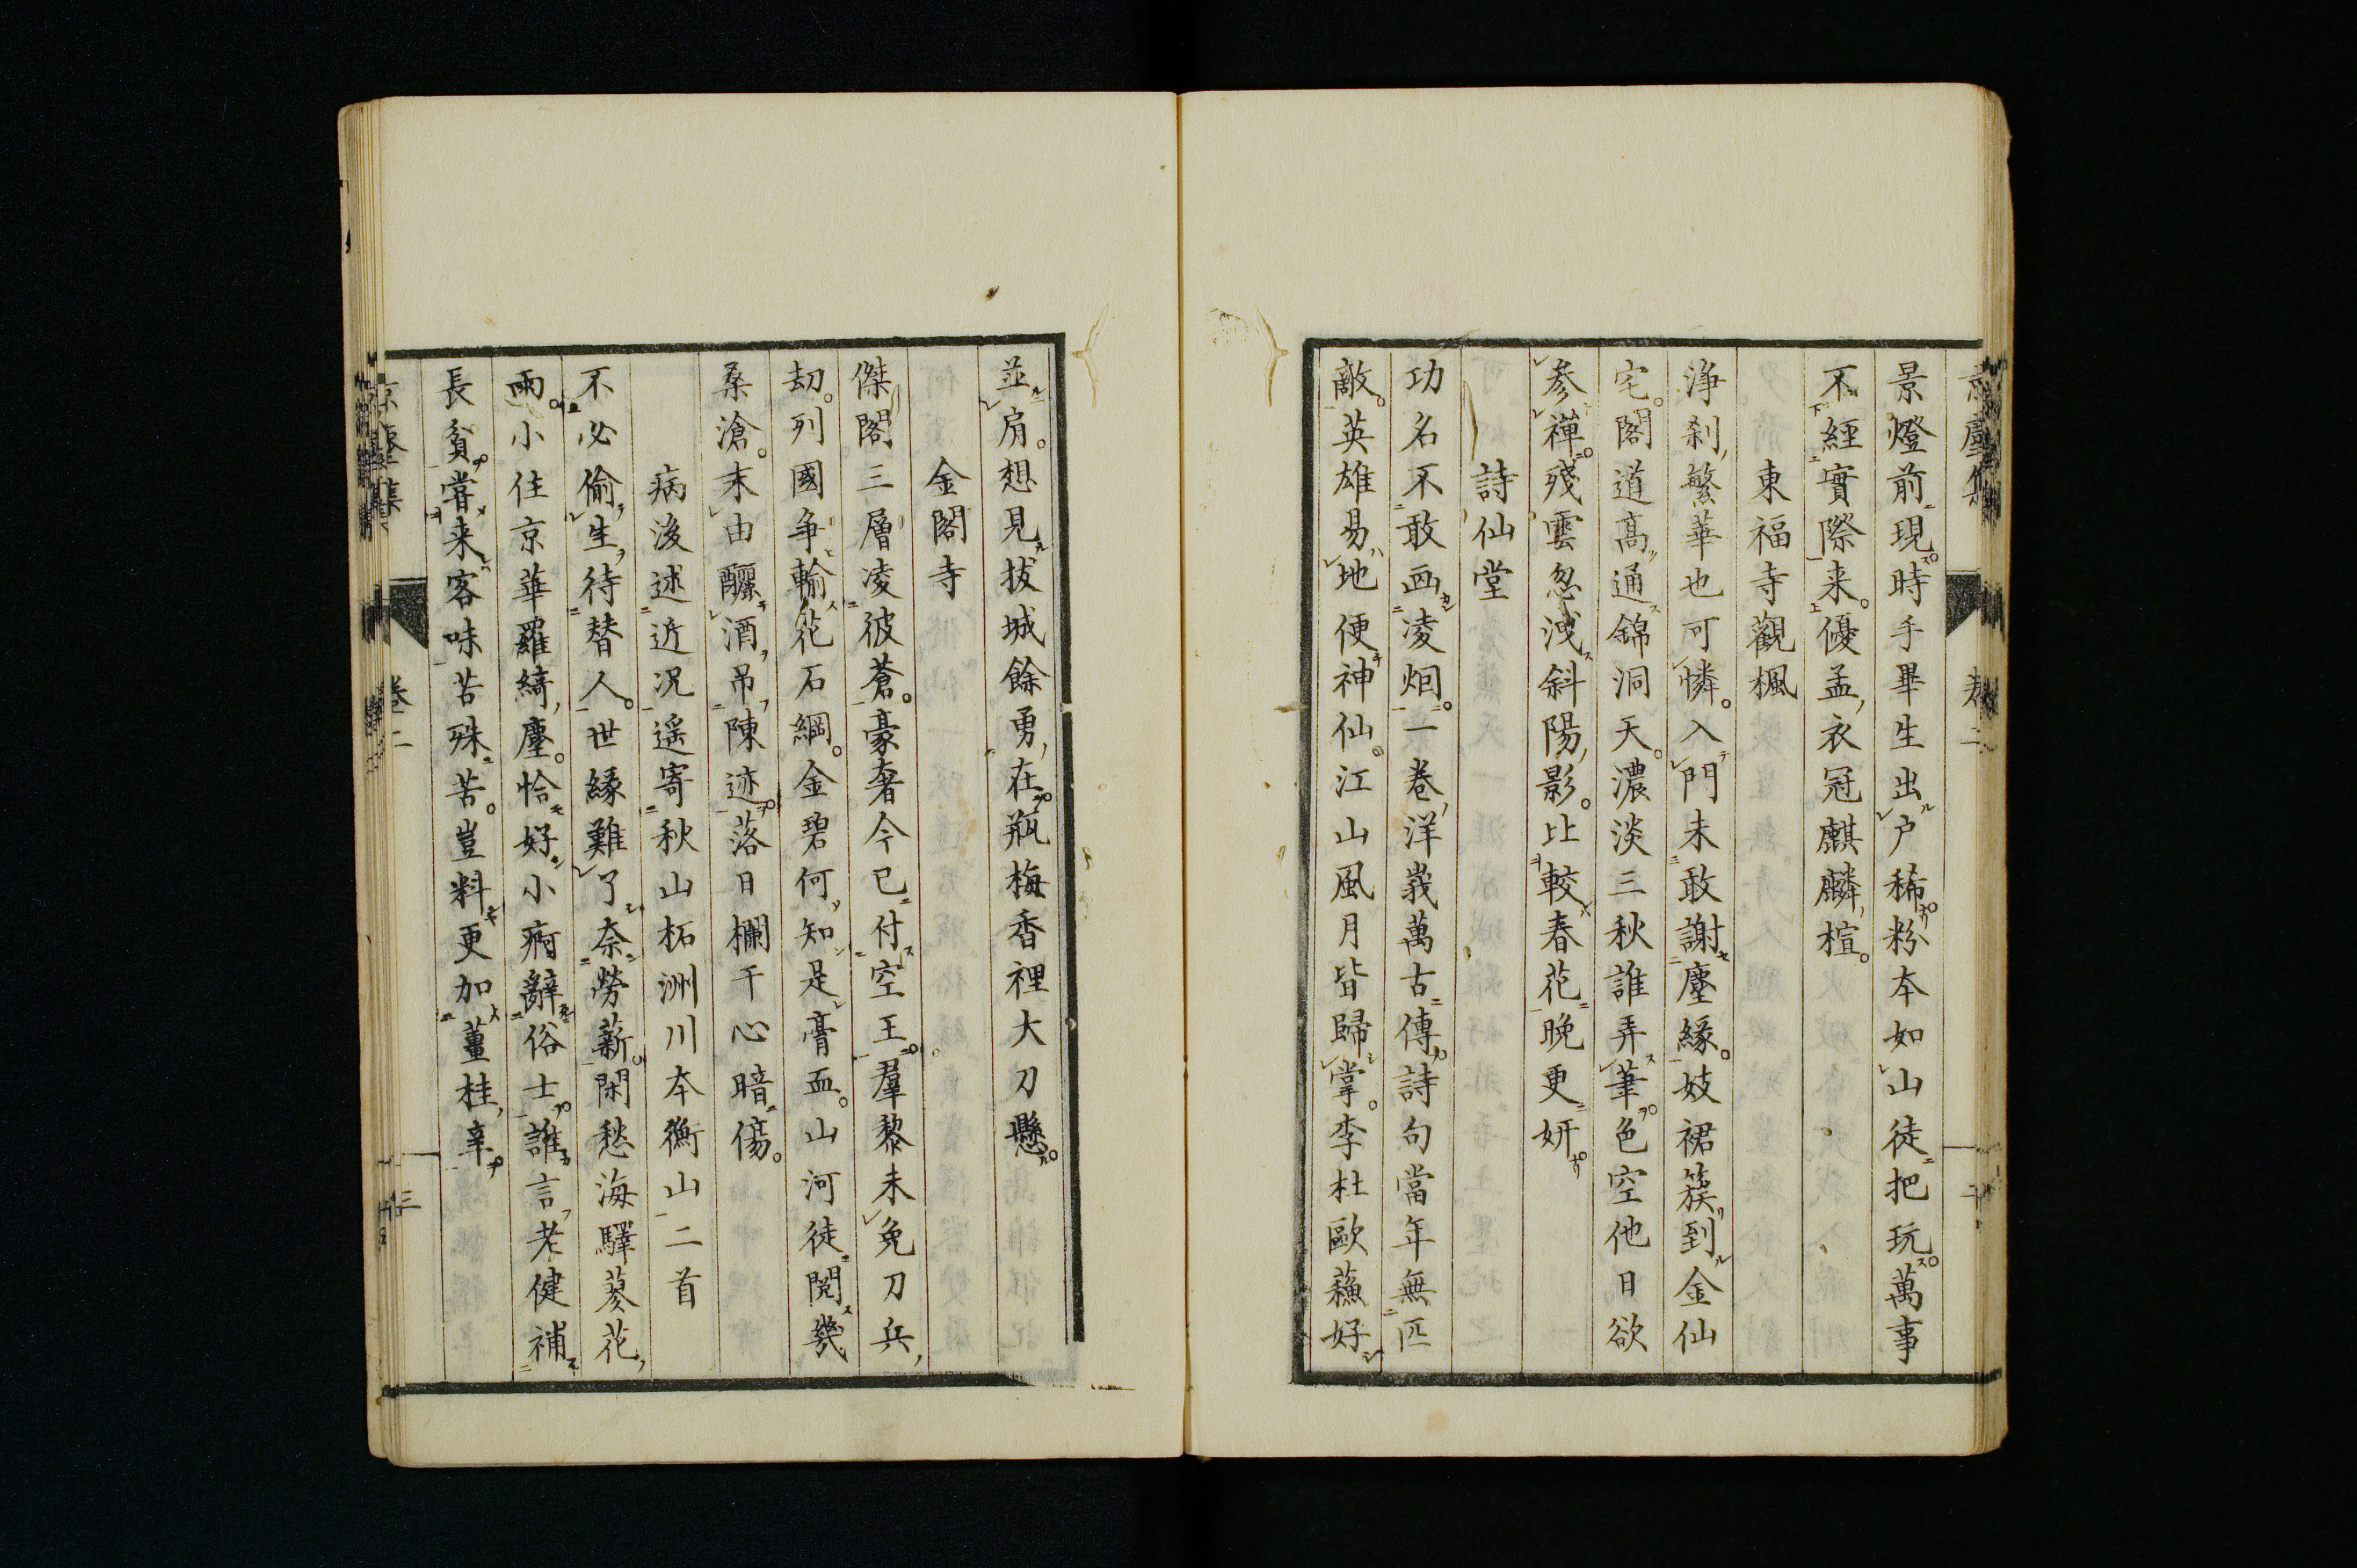 景燈前現時手畢生出戶稀粉本如山徒把玩萬事
不經實際来優孟衣冠麒麟楦
東福寺觀楓
淨刹繁華也可憐入門未敢謝塵緣妓裙簇到金仙
宅閣道高通錦洞天濃淡三秋誰弄筆色空他日欲
参禪殘雲忽洩斜陽影比較春花晚更妍
詩仙堂
功名不敢画凌烟一卷洋峩萬古傳詩句當年無匹
敵英雄易地便神仙江山風月皆歸掌李杜歐蘓好
並肩想見拔城餘勇在瓶梅香裡大刀懸
金閣寺
傑閣三層凌彼蒼豪奢今已付空王羣黎未免刀兵
劫列國争輸花石綱金碧何知是膏血山河徒閱幾
桑滄末由釃酒吊陳迹落日欄干心暗傷
病後述近况遥寄秋山柘洲川本衡山二首
不必偷生待替人世緣難了奈勞薪閑愁海驛蓼花
雨小住京華羅綺塵恰好小痾辭俗士誰言老健補
長貧嘗来客味苦殊苦豈料更加薑桂辛
京塵集 卷二 三